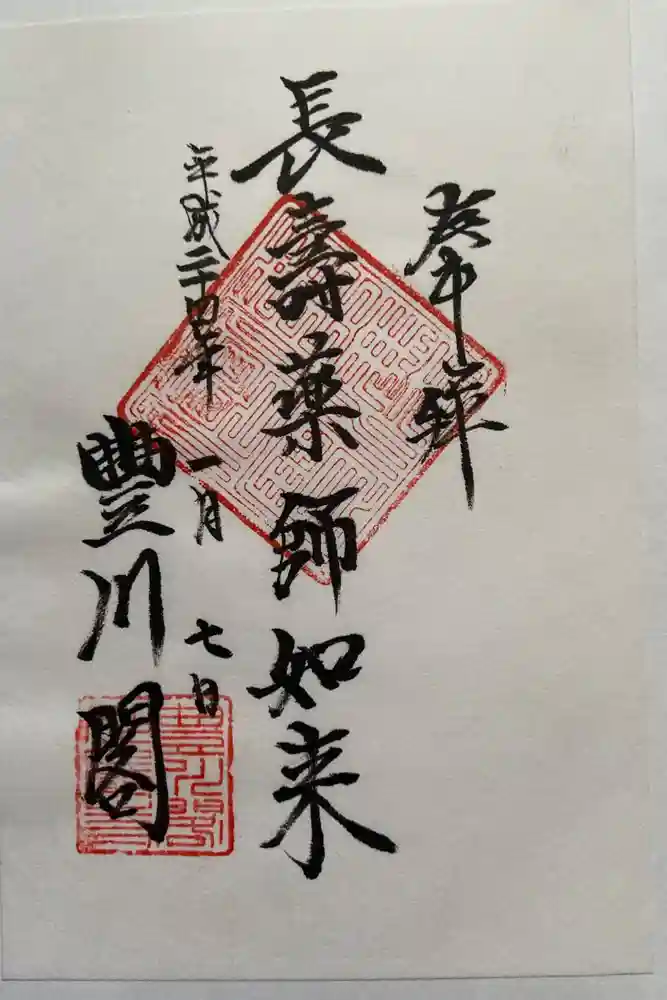 奉拝
長壽薬師如来
平成二十四年
一月
七日
豐川閣